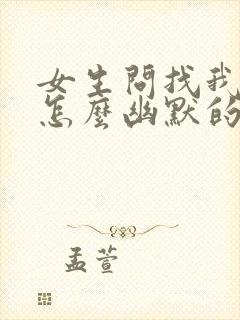 女生問找我
怎麼幽默的
孟萱